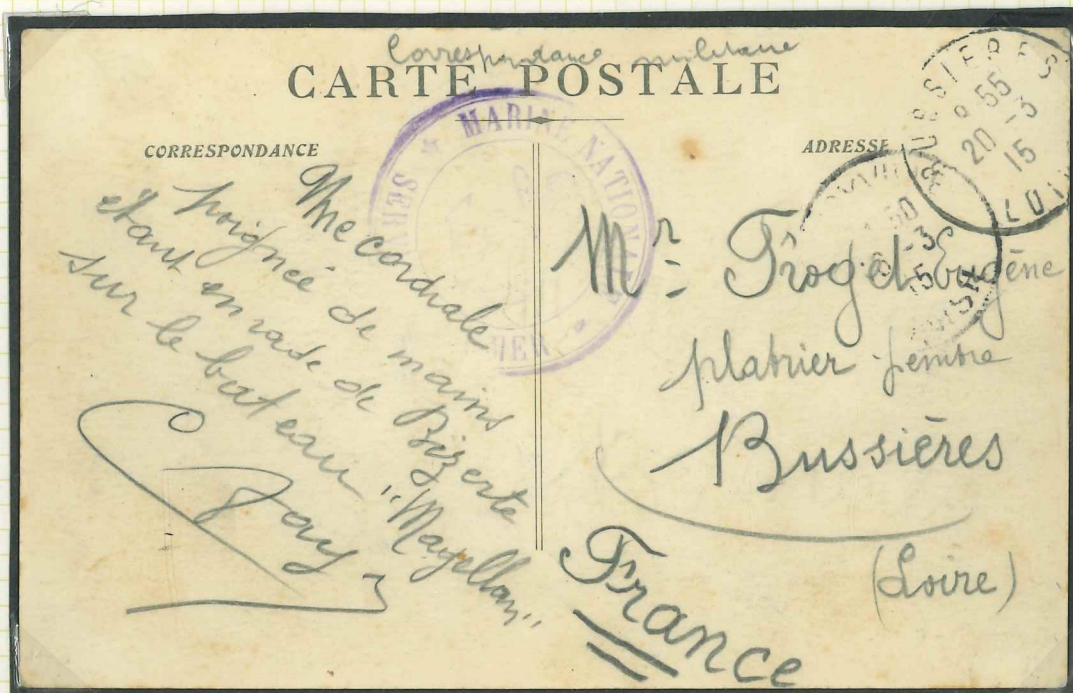 Correspondance militaire
CARTE POSTALE
CORRESPONDANCE
ADRESSE
MARINE NATIONALE
SERVICE MER
BUSSIERES
8 55
20 -3
15
LOIRE
50
-3
15
Une cordiale
poignée de mains
étant en rade de Bizerte
sur le bateau "Magellan"
Gay
Mr. Froget Eugène
platrier peintre
Bussières
(Loire)
France